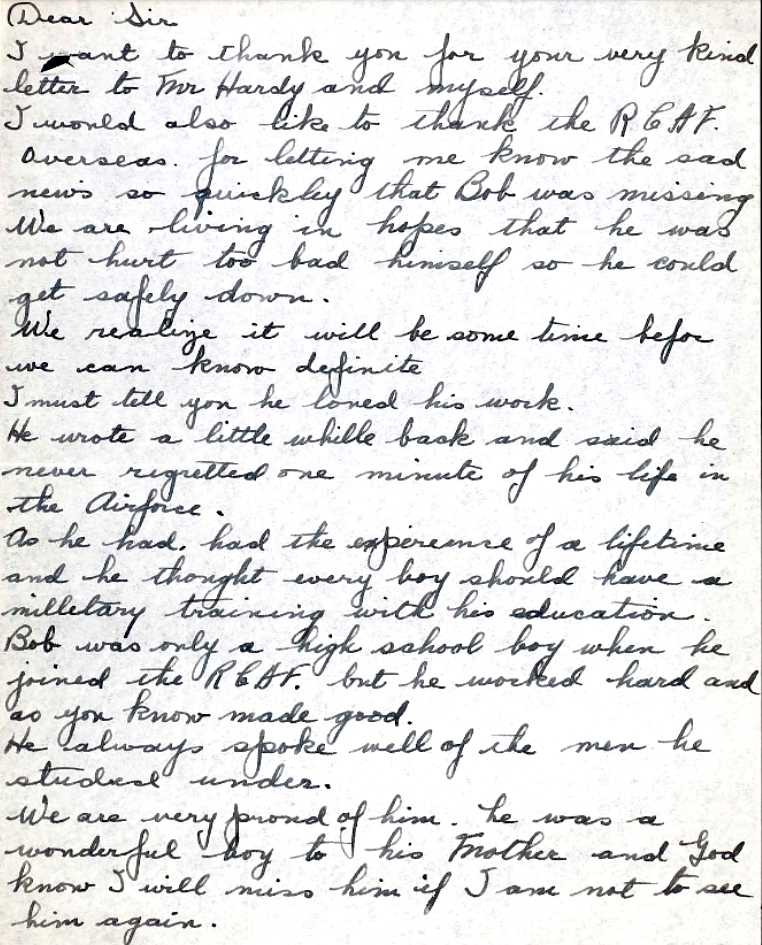 Dear Sir
I want to thank you for your very kind
letter to Mr Hardy and myself.
I would also like to thank the R.C.A.F.
Overseas. for letting me know the sad
news so quickley that Bob was missing
We are living in hopes that he was
not hurt too bad himself so he could
get safely down.
We realize it will be some time befor
we can know definite
I must tell you he loved his work.
He wrote a little whille back and said he
never regretted one minute of his life in
the Airforce.
As he had. had the expereince of a lifetime
and he thought every boy should have a
milletary training with his education.
Bob was only a high school boy when he
joined the R.C.A.F. but he worked hard and
as you know made good.
He always spoke well of the men he
studied under.
We are very proud of him. he was a
wonderful boy to his Mother and God
know I will miss him if I am not to see
him again.